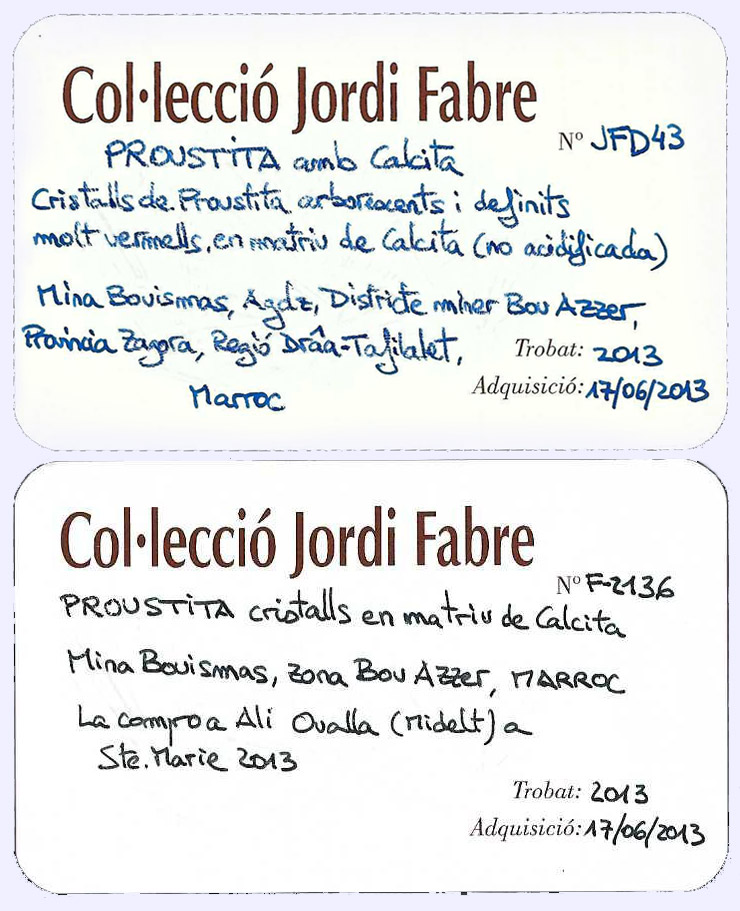 Col·lecció Jordi Fabre
Nº JFD43
PROUSTITA amb Calcita
Cristalls de Proustita arborescents i definits
molt vermells, en matriu de Calcita (no acidificada)
Mina Bouismas, Agdz, Districte miner Bou Azzer,
Província Zagora, Regió Drâa-Tafilalet,
Trobat: 2013
Adquisició: 17/06/2013
Marroc
Col·lecció Jordi Fabre
Nº F-2136
PROUSTITA cristalls en matriu de Calcita
Mina Bouismas, zona Bou Azzer, MARROC
La compro a Ali Oualla (Midelt) a
Ste. Marie 2013
Trobat: 2013
Adquisició: 17/06/2013